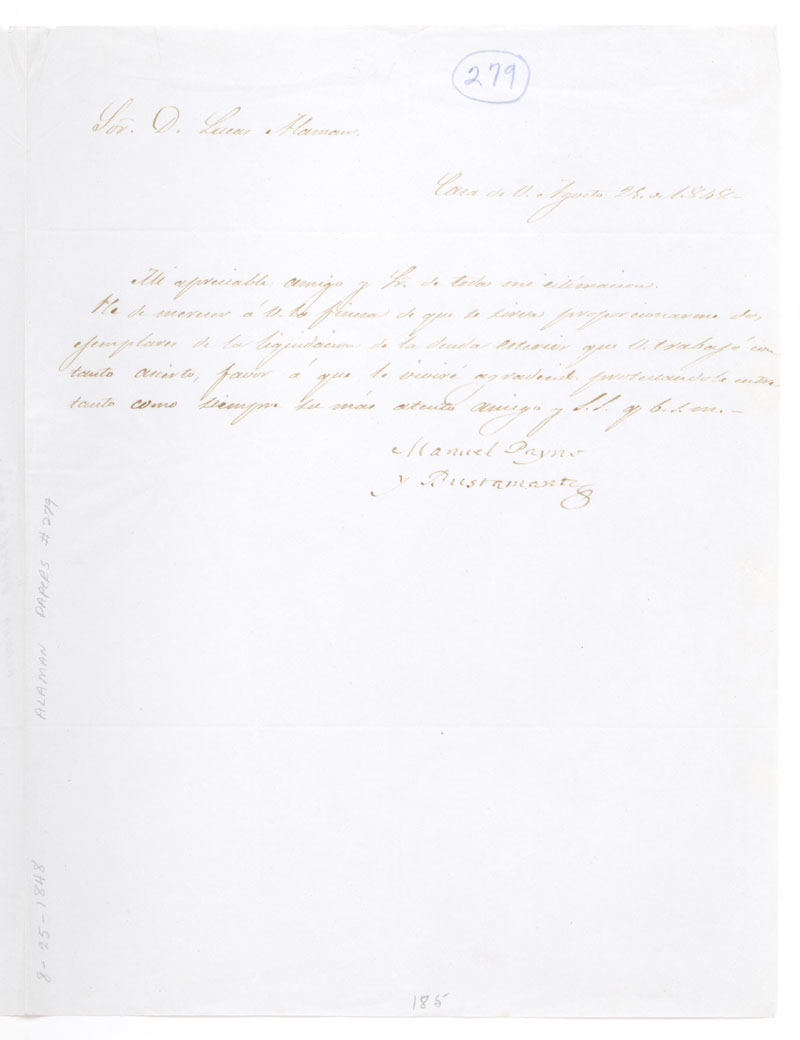 279
Sor. D. Lucas Alaman.
Casa de U. Agosto 25. de 1.848.-
Mi apreciable amigo y Sr. de toda mi estimacion.
He de merecer á U. la fineza de que se sirva proporcionarme dos
ejemplares de la liquidacion de la deuda esterior que U. trabajó con
tanto acierto, favor á que le viviré agradecido protestandole entre
tanto como siempre su más atento amigo y S.S. q b.s.m.-
Manuel Payno
y Bustamante
ALAMAN PAPERS # 279
8-25-1848
185